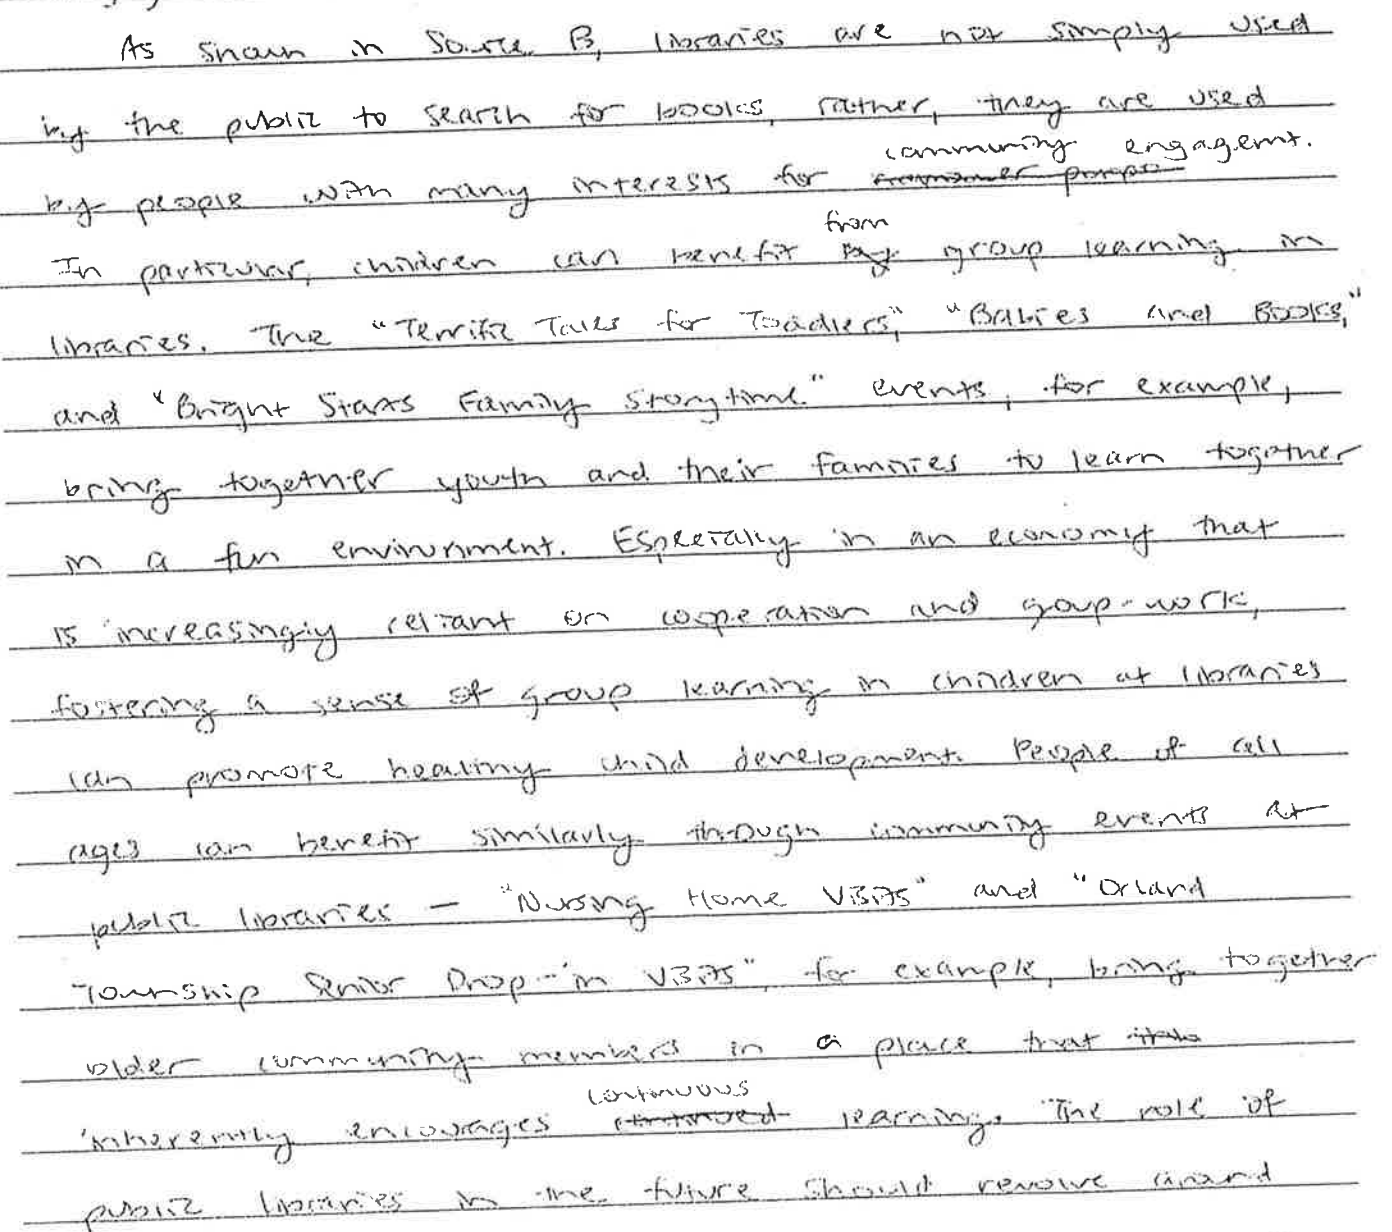 As shown in Source B, libraries are not simply used
by the public to search for books, rather, they are used
by people with many interests for community engagemt.
In particular, children can benefit from group learning in
libraries. The "Terrific Tales for Toddlers," "Babies and Books,"
and "Bright Stars Family Storytime" events, for example,
bring together youth and their families to learn together
in a fun environment. Especially in an economy that
is increasingly reliant on cooperation and group-work,
fostering a sense of group learning in children at libraries
can promote healthy child development. People of all
ages can benefit similarly through community events at
public libraries — "Nursing Home Visits" and "Orland
Township Senior Drop-in Visits", for example, bring together
older community members in a place that
inherently encourages continuous learning. The role of
public libraries in the future should revolve around